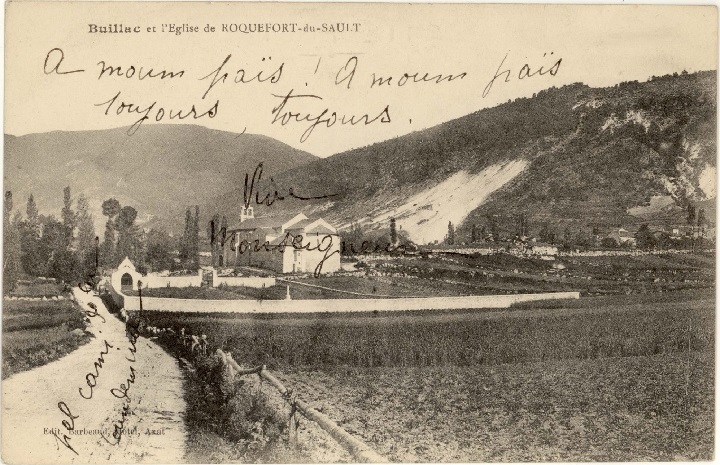 Buillac et l'Eglise de ROQUEFORT-du-SAULT
A moun païs ! A moun païs
toujours toujours.
Vive
Monseigneur
pel cami de
Edit. Barbeaud, Hôtel, Axat